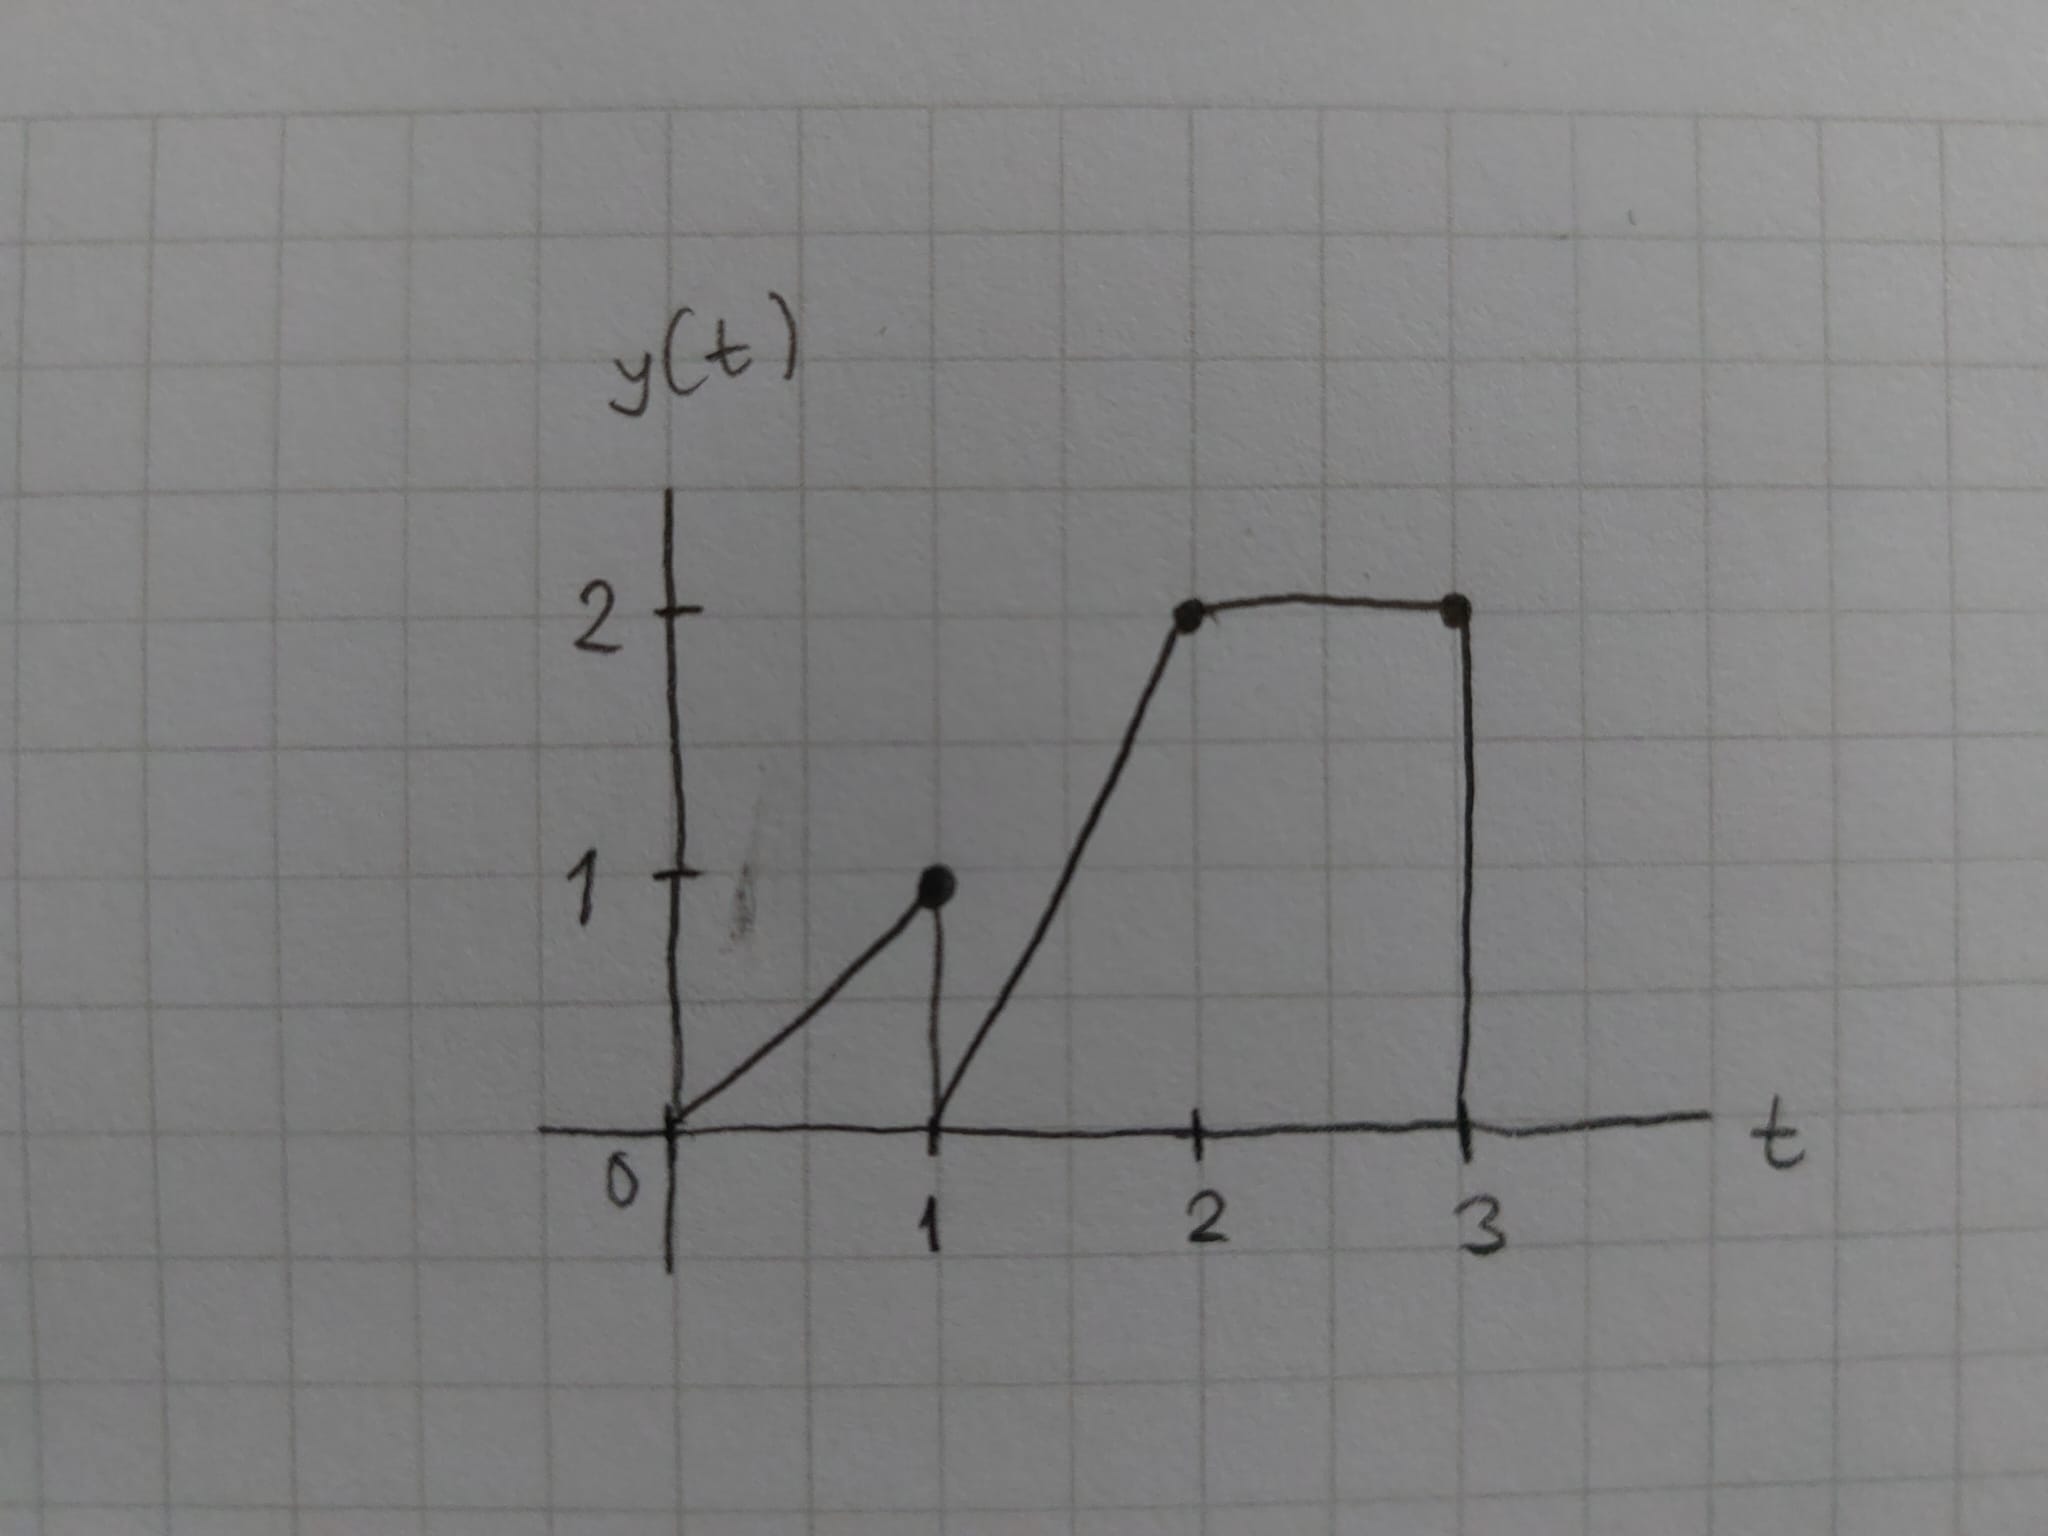 y(t)
2
1
0 1 2 3 t